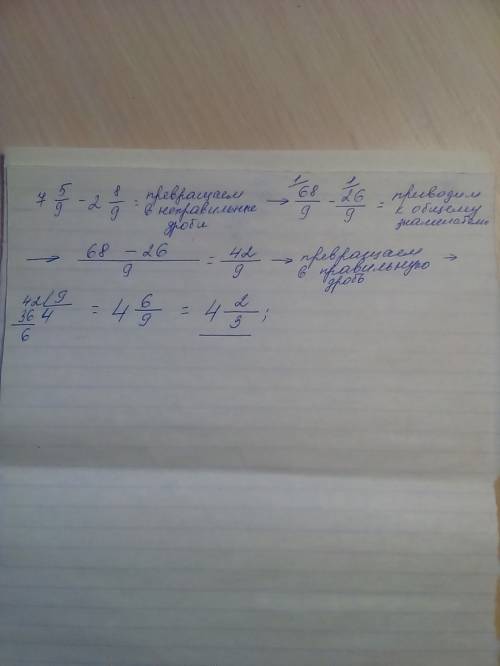 7 5/9 - 2 8/9 = превращаем в неправильные дроби → 68/9 - 26/9 = приводим к общему знаменателю
→ (68 - 26)/9 = 42/9 → превращаем в правильную дробь →
42 | 9
36 4
6
= 4 6/9 = 4 2/3 ;